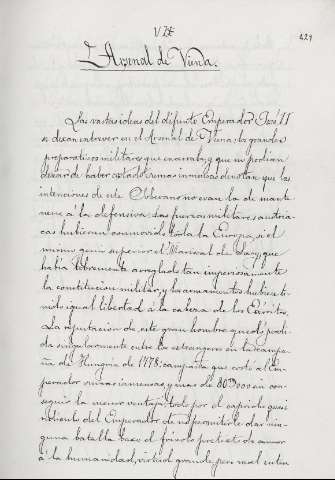 VII
429
El Arsenal de Viena.
Las vastas ideas del difunto Emperador José II
se dexan entrever en el Arsenal de Viena: los grandes
preparativos militares que encerraba, y que no podian
dexar de haber costado sumas inmensas denotan que las
intenciones de este Soberano no eran la de mante
nerse á la defensiva. Las fuerzas militares austria-
cas hubieran conmovido toda la Europa, si el
mismo genio superior el Mariscal de Lacy, que
había libremente arreglado tan imperiosamente
la constitucion militar y los armamentos hubiera te-
nido igual libertad á la cabeza de los Exércitos.
La reputacion de este gran hombre quedó perdi-
da singularmente entre los estrangeros en la campa-
ña de Hungría de 1778; campaña que costó al Em-
perador sumas inmensas, y mas de 80.000 sin con-
seguir la menor ventaja: todo por el capricho quasi
ridículo del Emperador de no permitirle dar nin-
guna batalla baxo el frívolo pretexto de amor
á la humanidad, virtud grande pero mal enten